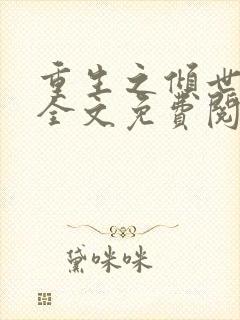 重生之倾世
全文免费阅
黛咪咪